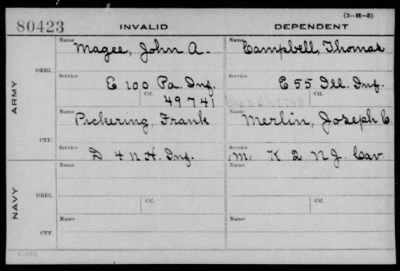 (3-H-5)
80423 INVALID DEPENDENT
ARMY
ORIG.
Name Magee, John A. Name Campbell, Thomas
Service E 100 Pa. Inf. Service E 55 Ill. Inf.
Ctf. 49741 Ctf.
CTF.
Name Pickering, Frank Name Merlin, Joseph C
D 4 N.H. Inf. M K 2 N.J. Cav
NAVY
ORIG.
Name Name
Service Service
Ctf. Ctf.
CTF.
Name Name